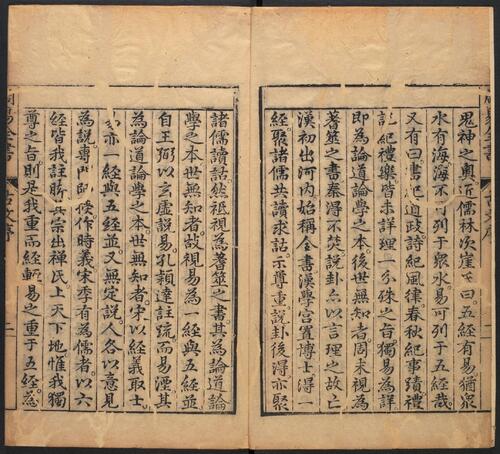 鬼神之奧近儒林次崖氏曰五經有易猶衆
水有海海不可列于衆水易可列于五經哉
又有曰書紀道政詩紀風律春秋紀事蹟禮
記紀禮樂皆未詳理一分殊之旨獨易為詳
即為論道論學之本後世無知者周末視為
蓍筮之書秦得不焚說卦亦以言理之故亡
漢初出河內始稱全書漢學宮置博士得一
經聚諸儒共讀求詁示尊重說卦後得亦聚
諸儒讀詁然祗視為蓍筮之書其為論道論
學之本世無知者故視易為一經與五經並
自王弼以玄虛說易孔穎達註疏而易湮其
為論道論學之本世無知者宋以經義取士
亦一經與五經並又無定說人各以意見
為說專門師授作時義宋季有為儒者以六
經皆我註腳其宗出禪氏上天下地惟我獨
尊之旨則是我重而經輕易之重于五經為
周易全書
古文序
二